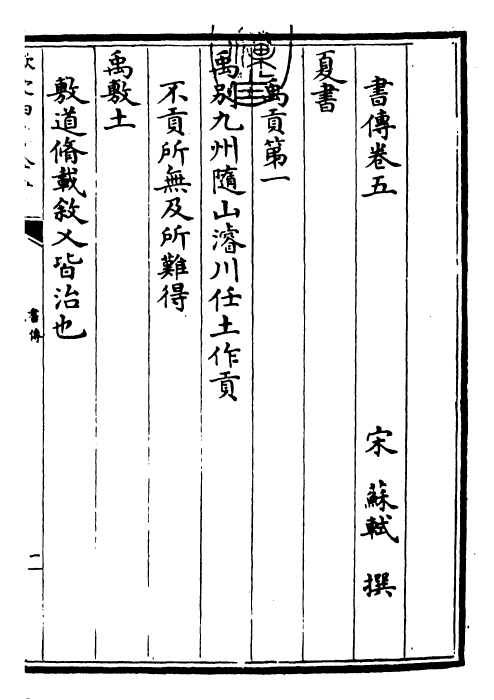 書傳卷五
宋 蘇軾 撰
夏書
禹貢第一
禹別九州隨山濬川任土作貢
不貢所無及所難得
禹敷土
敷道脩載敘乂皆治也
書傳
一